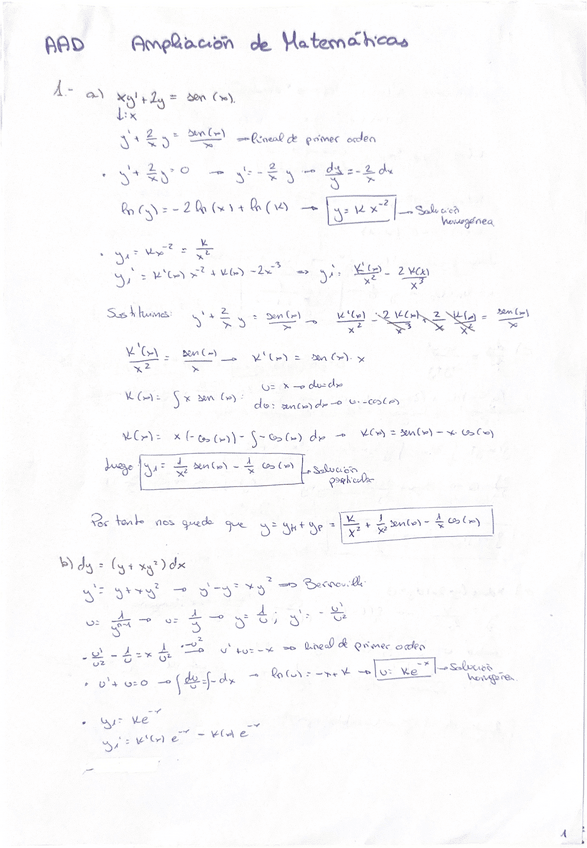 AAD Ampliación de Matemáticas
1.- a) xy' + 2y = sen(x).
↓:x
y' + 2/x y = sen(x)/x → Lineal de primer orden
• y' + 2/x y = 0 → y' = -2/x y → dy/y = -2/x dx
ln(y) = -2 ln(x) + ln(K) → y = K x⁻² → Solución homogénea
• y₁ = Kx⁻² = K/x²
y₁' = K'(x) x⁻² + K(x) - 2x⁻³ ⇒ y₁' = K'(x)/x² - 2K(x)/x³
Sustituimos: y' + 2/x y = sen(x)/x → K'(x)/x² - 2K(x)/x³ + 2/x K(x)/x² = sen(x)/x
K'(x)/x² = sen(x)/x → K'(x) = sen(x)·x
K(x) = ∫ x sen(x) = u = x → du = dx
dv = sen(x) dx → v = -cos(x)
K(x) = x(-cos(x)) - ∫ -cos(x) dx → K(x) = sen(x) - x cos(x)
Luego y₁ = 1/x² sen(x) - 1/x cos(x) → Solución particular
Por tanto nos queda que y = yH + yP = K/x² + 1/x² sen(x) - 1/x cos(x)
b) dy = (y + xy²) dx
y' = y + xy² → y' - y = xy² ⇒ Bernoulli
u = 1/yⁿ⁻¹ → u = 1/y → y = 1/u ; y' = -u'/u²
-u'/u² - 1/u = x 1/u² →(·-u²) u' + u = -x ⇒ Lineal de primer orden
• u' + u = 0 → ∫du/u = ∫-dx → ln(u) = -x + K → u = Ke⁻ˣ → Solución homogénea
• y₁ = Ke⁻ˣ
y₁' = K'(x) e⁻ˣ - K(x) e⁻ˣ
1